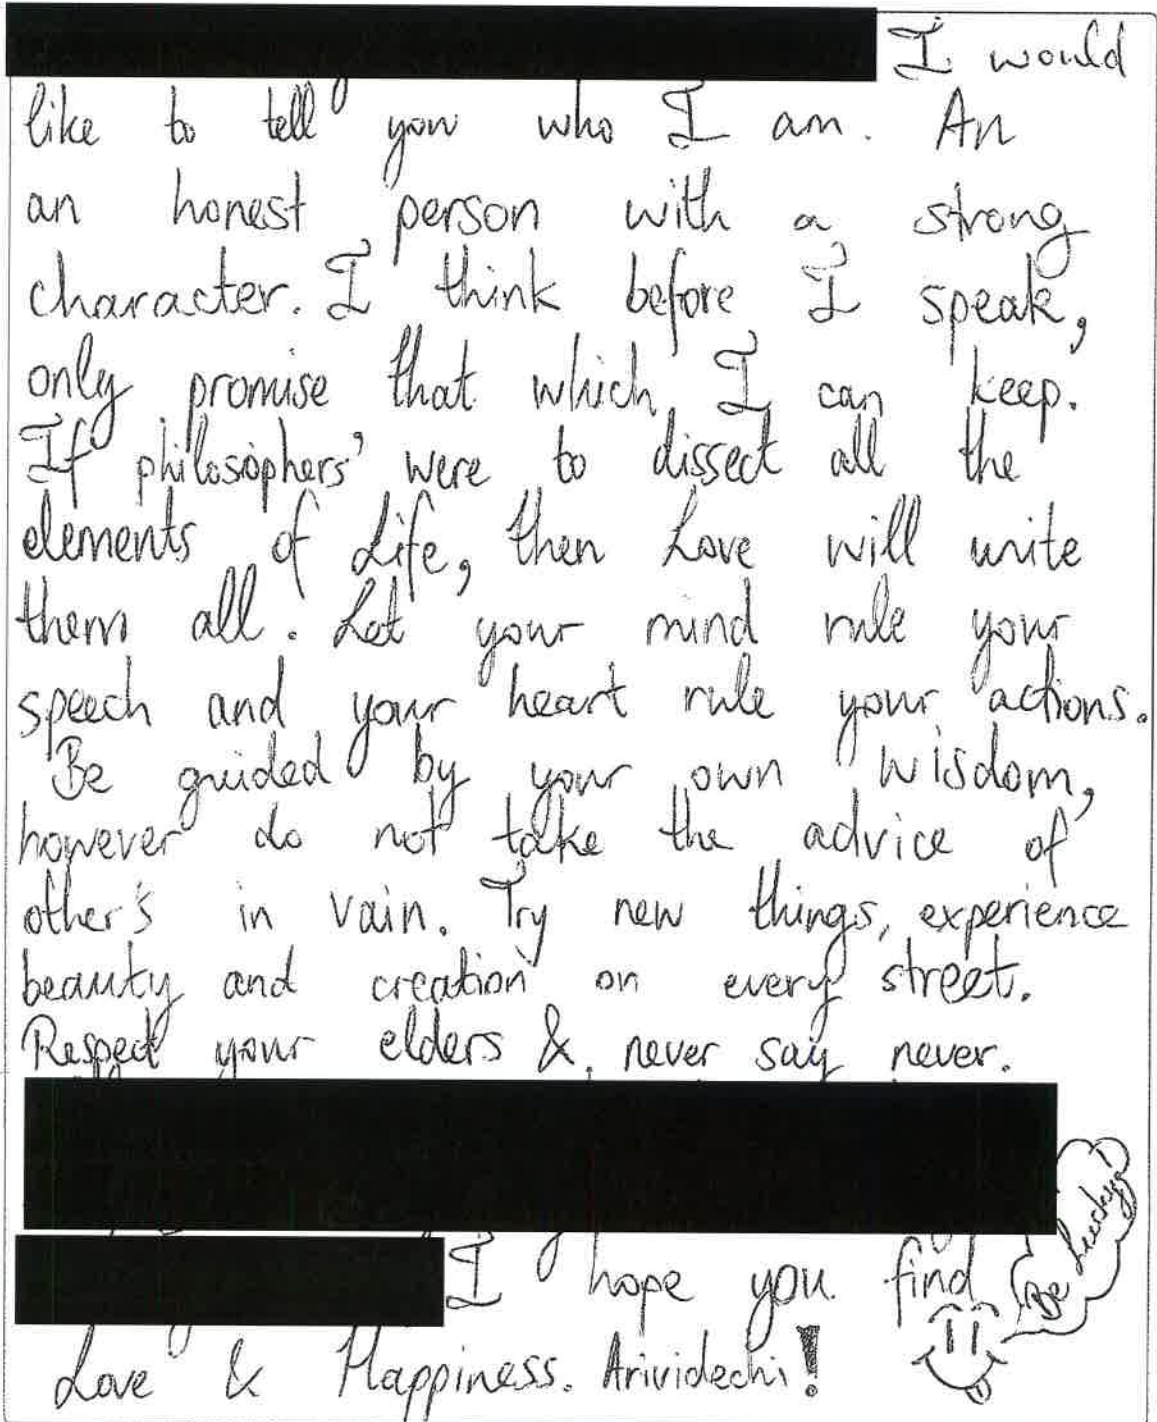 I would
like to tell you who I am. An
an honest person with a strong
character. I think before I speak,
only promise that which I can keep.
If philosophers' were to dissect all the
elements of Life, then Love will unite
them all. Let your mind rule your
speech and your heart rule your actions.
Be guided by your own wisdom,
however do not take the advice of
other's in vain. Try new things, experience
beauty and creation on every street.
Respect your elders & never say never.
I hope you find
Love & Happiness. Arividechi!
Be